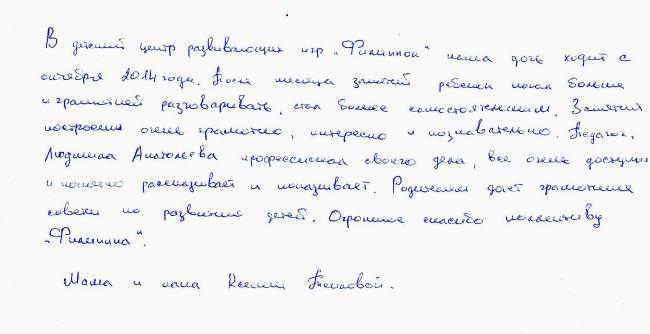 В детский центр развивающих игр „Филиппок" наша дочь ходит с
октября 2014 года. После месяца занятий ребенок начал больше
и грамотней разговаривать, стал более самостоятельным. Занятия
построены очень грамотно, интересно и познавательно. Педагог,
Людмила Анатольева профессионал своего дела, все очень доступно
и понятно рассказывает и показывает. Родителям дает грамотные
советы по развитию детей. Огромное спасибо коллективу
„Филиппка".
Мама и папа Ксении